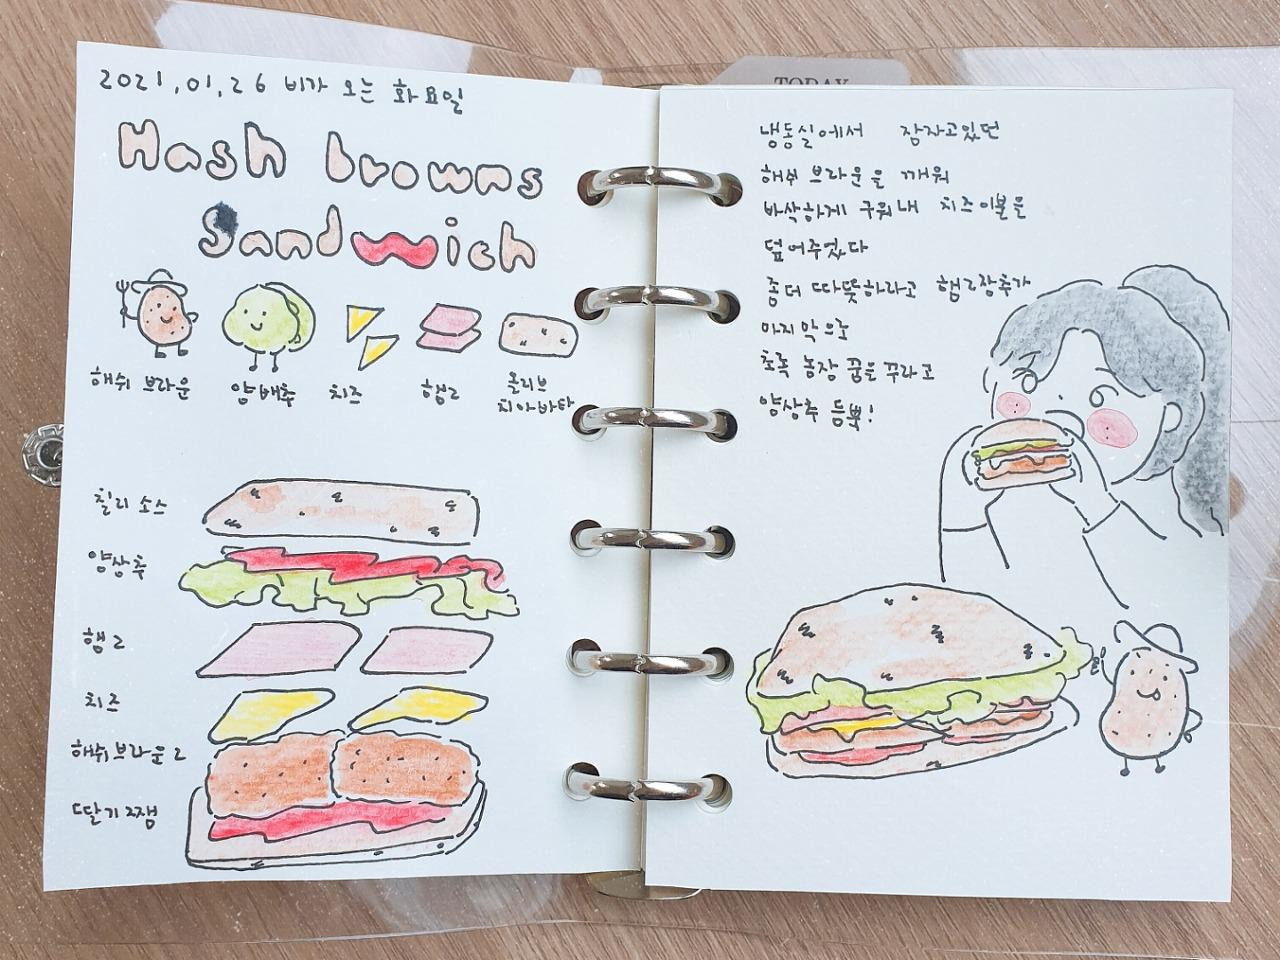 2021.01.26 비가 오는 화요일
Hash browns
Sandwich
해쉬 브라운
양배추
치즈
햄2
올리브
치아바타
칠리 소스
양상추
햄 2
치즈
해쉬브라운 2
딸기 쨈
TODAY
냉동실에서 잠자고있던
해쉬 브라운을 깨워
바삭하게 구워내 치즈이불을
덮어주었다
좀더 따뜻하라고 햄2장추가
마지막으로
초록 농장 꿈을 꾸라고
양상추 듬뿍!